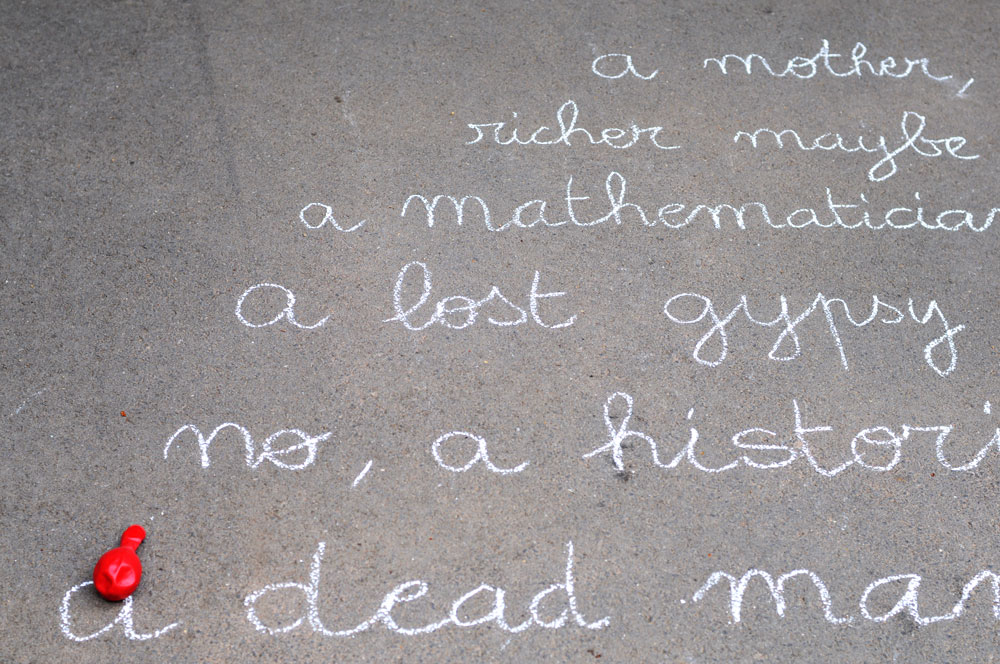 a mother,
richer maybe
a mathematician
a lost gypsy
no, a histori
a dead man